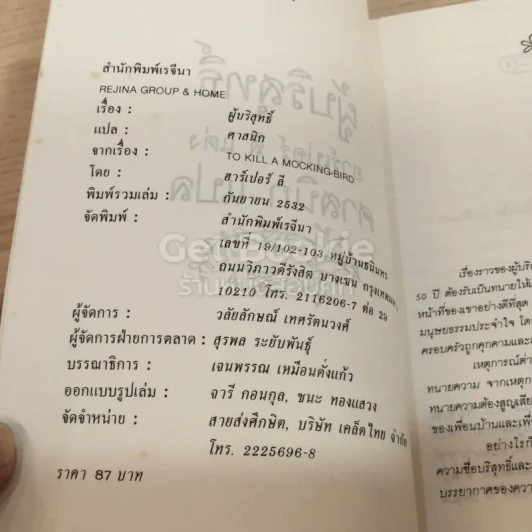 สำนักพิมพ์เรจีนา
REJINA GROUP & HOME
เรื่อง : ผู้บริสุทธิ์
แปล : ศาสนิก
จากเรื่อง : TO KILL A MOCKING-BIRD
โดย : ฮาร์เปอร์ ลี
พิมพ์รวมเล่ม : กันยายน 2532
จัดพิมพ์ : สำนักพิมพ์เรจีนา
เลขที่ 19/102-103 หมู่บ้านธนินทร
ถนนวิภาวดีรังสิต บางเขน กรุงเทพมหานคร
10210 โทร. 2116206-7 ต่อ 29
ผู้จัดการ : วลัยลักษณ์ เทศรัตนวงศ์
ผู้จัดการฝ่ายการตลาด : สุรพล ระยับพันธุ์
บรรณาธิการ : เจนพรรณ เหมือนดั่งแก้ว
ออกแบบรูปเล่ม : จารี กอนกุล, ขนะ ทองแสวง
จัดจำหน่าย : สายส่งศึกษิต, บริษัท เคล็ดไทย จำกัด
โทร. 2225696-8
ราคา 87 บาท
Get Bookie
เรื่องราวของผู้บริ
50 ปี ต้องรับเป็นทนายให้
หน้าที่ของเขาอย่างดีที่สุด
มนุษยธรรมประจำใจ โด
ครอบครัวถูกคุกคามและ
เหตุการณ์ต่า
ทนายความ จากเหตุก
ทนายความต้องสูญเสีย
ของเพื่อนบ้านและเพื่
อย่างไรก็
ความซื่อบริสุทธิ์และ
บรรยากาศของความ